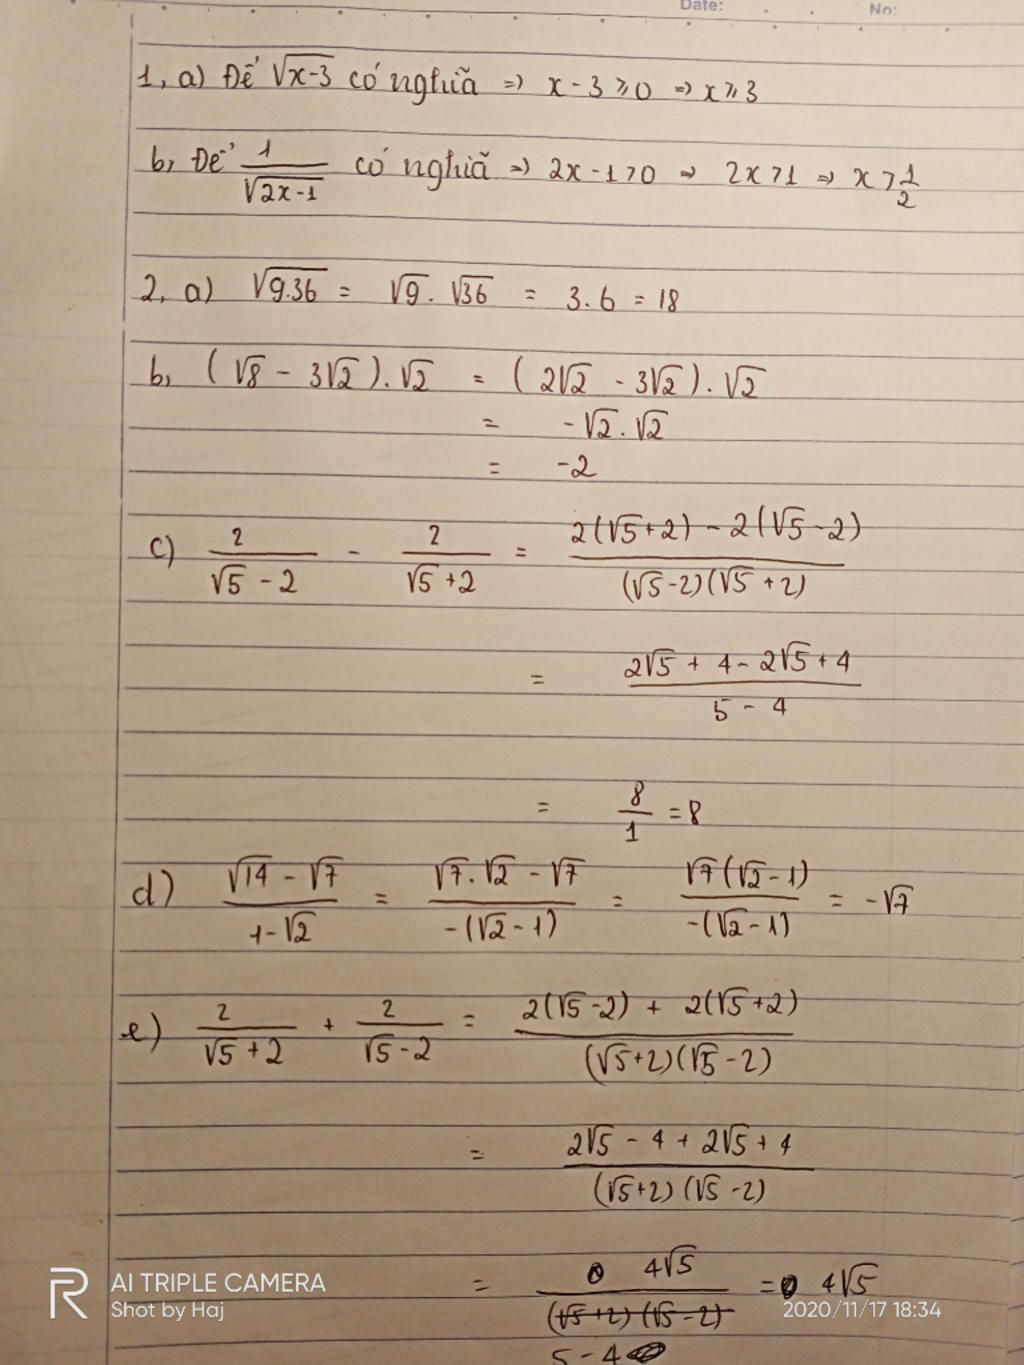 Date: No:
1, a) Để √(x-3) có nghĩã => x - 3 ⩾ 0 => x ⩾ 3
b, Để 1/√(2x-1) có nghĩã => 2x - 1 > 0 => 2x > 1 => x > 1/2
2, a) √(9.36) = √9 . √36 = 3. 6 = 18
b, (√8 - 3√2). √2 = (2√2 - 3√2). √2
= -√2. √2
= -2
c) 2/(√5 - 2) - 2/(√5 + 2) = (2(√5+2) - 2(√5-2))/((√5-2)(√5+2))
= (2√5 + 4 - 2√5 + 4)/(5 - 4)
= 8/1 = 8
d) (√14 - √7)/(1-√2) = (√7.√2 - √7)/(-(√2-1)) = (√7(√2-1))/(-(√2-1)) = -√7
e) 2/(√5+2) + 2/(√5-2) = (2(√5-2) + 2(√5+2))/((√5+2)(√5-2))
= (2√5 - 4 + 2√5 + 4)/((√5+2)(√5-2))
= 4√5/((√5+2)(√5-2)) = 4√5
5 - 4
AI TRIPLE CAMERA
Shot by Haj
2020/11/17 18:34